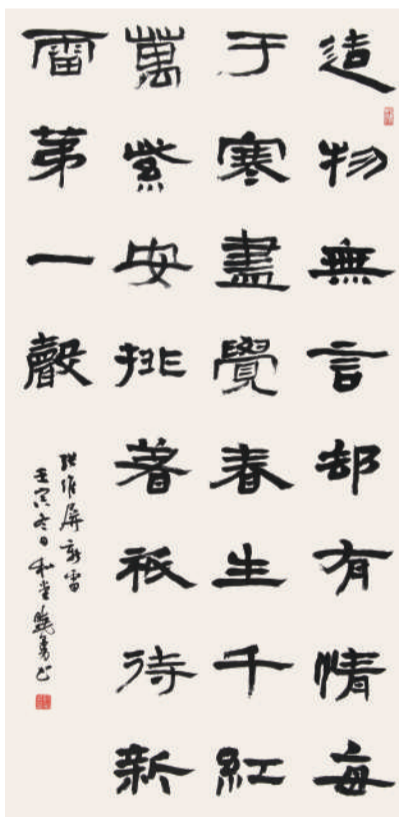 造物無言却有情每
于寒盡覺春生千紅
萬紫安排著祇待新
雷苐一聲
张维屏新雷
壬寅冬日和堂